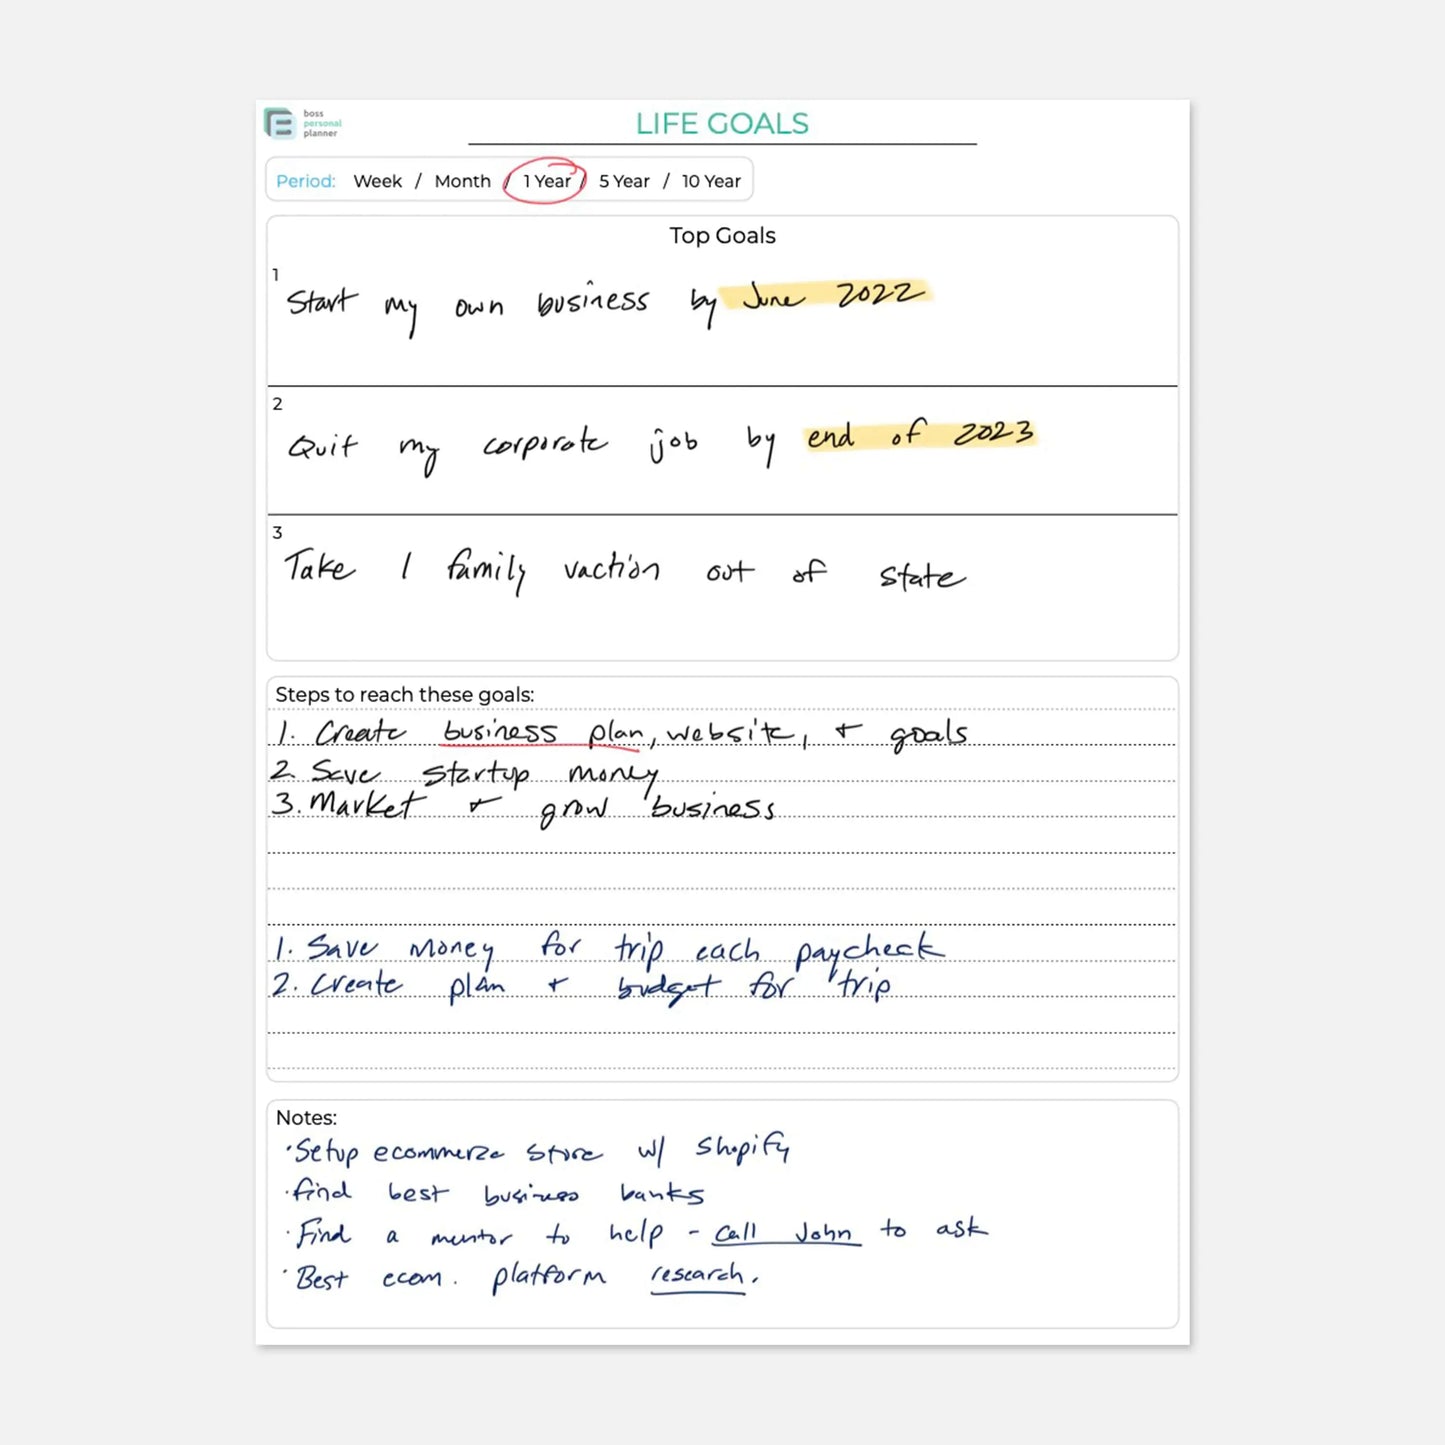 boss
personal
planner
LIFE GOALS
Period: Week / Month / 1 Year / 5 Year / 10 Year
Top Goals
1
Start my own business by June 2022
2
Quit my corporate job by end of 2023
3
Take 1 family vaction out of state
Steps to reach these goals:
1. Create business plan, website, + goals
2. Save startup money
3. Market + grow business
1. Save money for trip each paycheck
2. Create plan + budget for trip
Notes:
· Setup ecommerce store w/ Shopify
· find best business banks
· Find a mentor to help - call John to ask
· Best ecom. platform research.